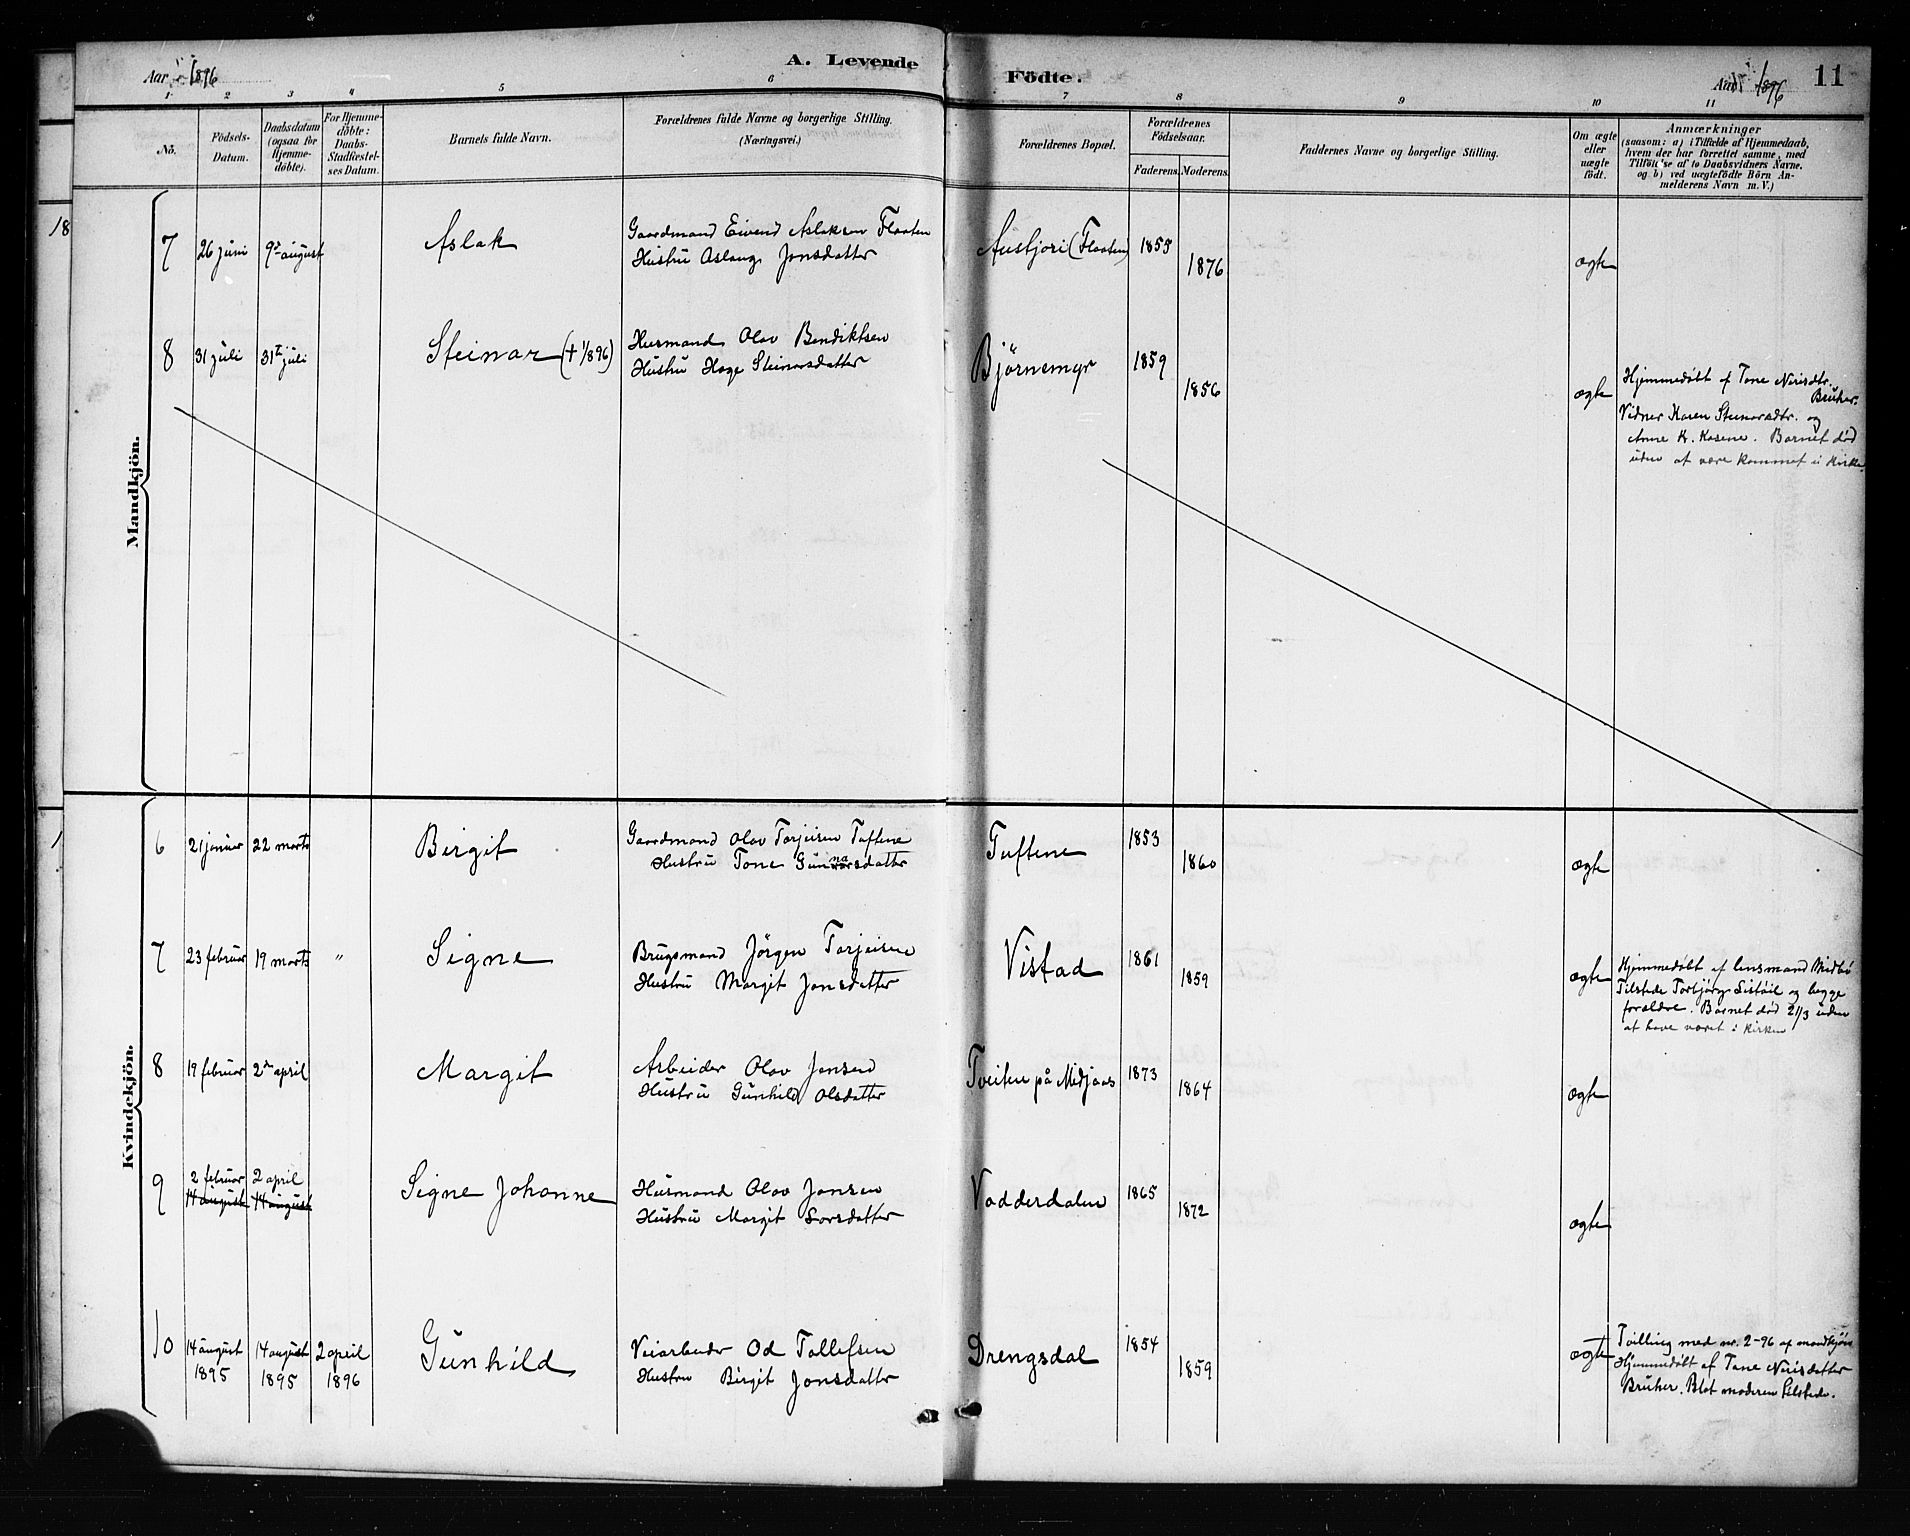 Aar 1896
A. Levende
Födte.
Aar 1896
11
1 2 3 4 5 6 7 8 9 10 11
No.
Födsels-
Datum.
Daabsdatum
(ogsaa for
Hjemme-
døbte).
For Hjemme-
døbte:
Daabs-
Stadfæstel-
ses Datum.
Barnets fulde Navn.
Forældrenes fulde Navne og borgerlige Stilling.
(Næringsvei.)
Forældrenes Bopæl.
Forældrenes
Födselsaar.
Faderens. Moderens.
Faddernes Navne og borgerlige Stilling.
Om ægte
eller
uægte
födt.
Anmærkninger
(saasom: a) i Tilfælde af Hjemmedaab,
hvem der har forrettet samme, med
Tilföielse af to Daabsvidners Navne.
og b) ved uægtefödte Börn An-
melderens Navn m. V.)
18
Mandkjön.
7 26 juni 9de august Aslak
Gaardmand Eivind Aslaksen Flaaten
Hustru Aslaug Jonsdatter
Austjori (Flaaten) 1855
1876
ægte
8 31 juli 31te juli Steinar (+ 1/8 96)
Husmand Olov Bendiktsen
Hustru Hæge Steinarsdatter
Bjørnemyr 1859
1856
ægte
Hjemmedøbt af Tone Nirisdtr.
Bruher.
Vidner Karen Steinarsdtr. og
Anne K. Kasene. Barnet død
uden at være kommet i kirke.
1
Kvindekjön.
6 21 januar 22 marts Birgit
Gaardmand Olav Torjeisen Tuftene
Hustru Tone Gunnarsdatter
na
Tuftene 1853
1860
ægte
7 23 februar 19 marts " Signe
Brugsmand Jörgen Torjeisen
Hustru Margit Jonsdatter
Vistad 1861
1859
ægte
Hjemmedøbt af lensmand Midbö
Tilstede Torbjørg Listøil og begge
forældre. Barnet død 21/3 uden
at have været i kirken
8 19 februar 2den april Margit
Arbeider Olav Jonsen
Hustru Gunhild Olsdatter
Tveiten på Midjaas 1873
1864
ægte
9 2 februar 2 april Signe Johanne
14 august 14 august
Husmand Olav Jonsen
Hustru Margit Larsdatter
Vadderdalen 1865
1872
ægte
10 14 august 14 august 2 april
1895 1895 1896
Gunhild
Veiarbeider Od Tallefsen
Hustru Birgit Jonsdatter
Drengsdal 1854
1859
ægte
Tvilling med nr. 2-96 af mandkjøn
Hjemmedøbt af Tone Nirisdatter
Bruher. Blot moderen tilstede.